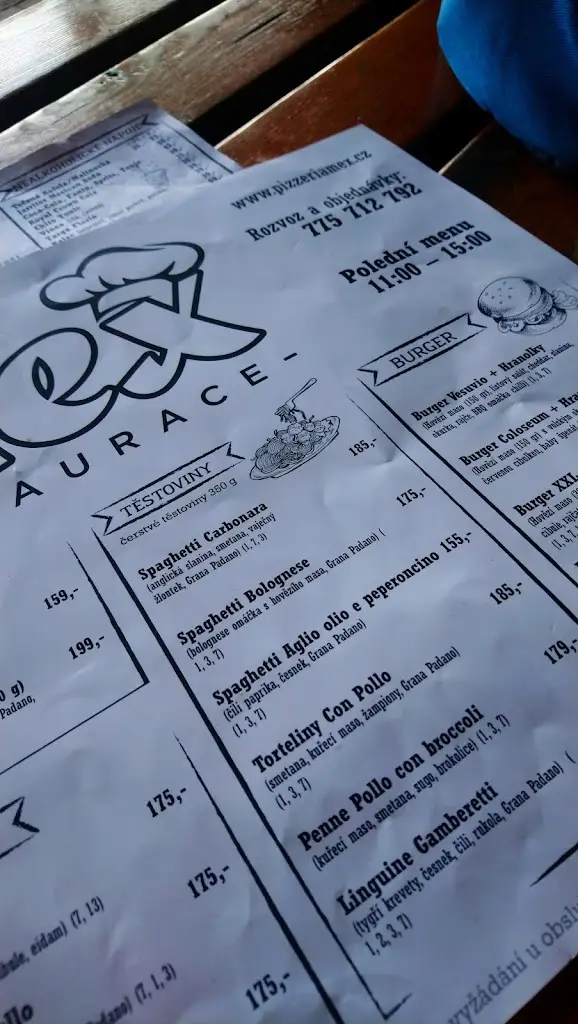 NEALKOHOLICKÉ NÁPOJE
www.pizzeriamex.cz
Rozvoz a objednávky:
775 712 792
Polední menu
11:00 – 15:00
ex
AURACE–
159,-
199,-
0 g)
Padano,
175,-
175,-
eidam) (7, 13)
(7, 1, 3)
175,-
TĚSTOVINY
čerstvé těstoviny 350 g
Spaghetti Carbonara 185,-
(anglická slanina, smetana, vaječný
žloutek, Grana Padano) (1, 7, 3)
Spaghetti Bolognese 175,-
(bolognese omáčka s hovězího masa, Grana Padano) (
1, 3, 7)
Spaghetti Aglio olio e peperoncino 155,-
(čili paprika, česnek, Grana Padano)
(1, 3, 7)
Torteliny Con Pollo 185,-
(smetana, kuřecí maso, žampiony, Grana Padano)
(1, 3, 7)
Penne Pollo con broccoli 179,-
(kuřecí maso, smetana, sugo, brokolice) (1, 3, 7)
Linguine Gamberetti
(tygří krevety, česnek, čili, rukola, Grana Padano) (
1, 2, 3, 7)
BURGER
Burger Vesuvio + Hranolky
(Hovězí maso (150 gr), listový salát, cheddar, slanina,
okurka, rajče, BBQ omáčka chilli) (1, 3, 7)
Burger Coloseum + Hra
(Hovězí maso (150 gr)
Burger XXL
(Hovězí maso
vyžádání u obslu